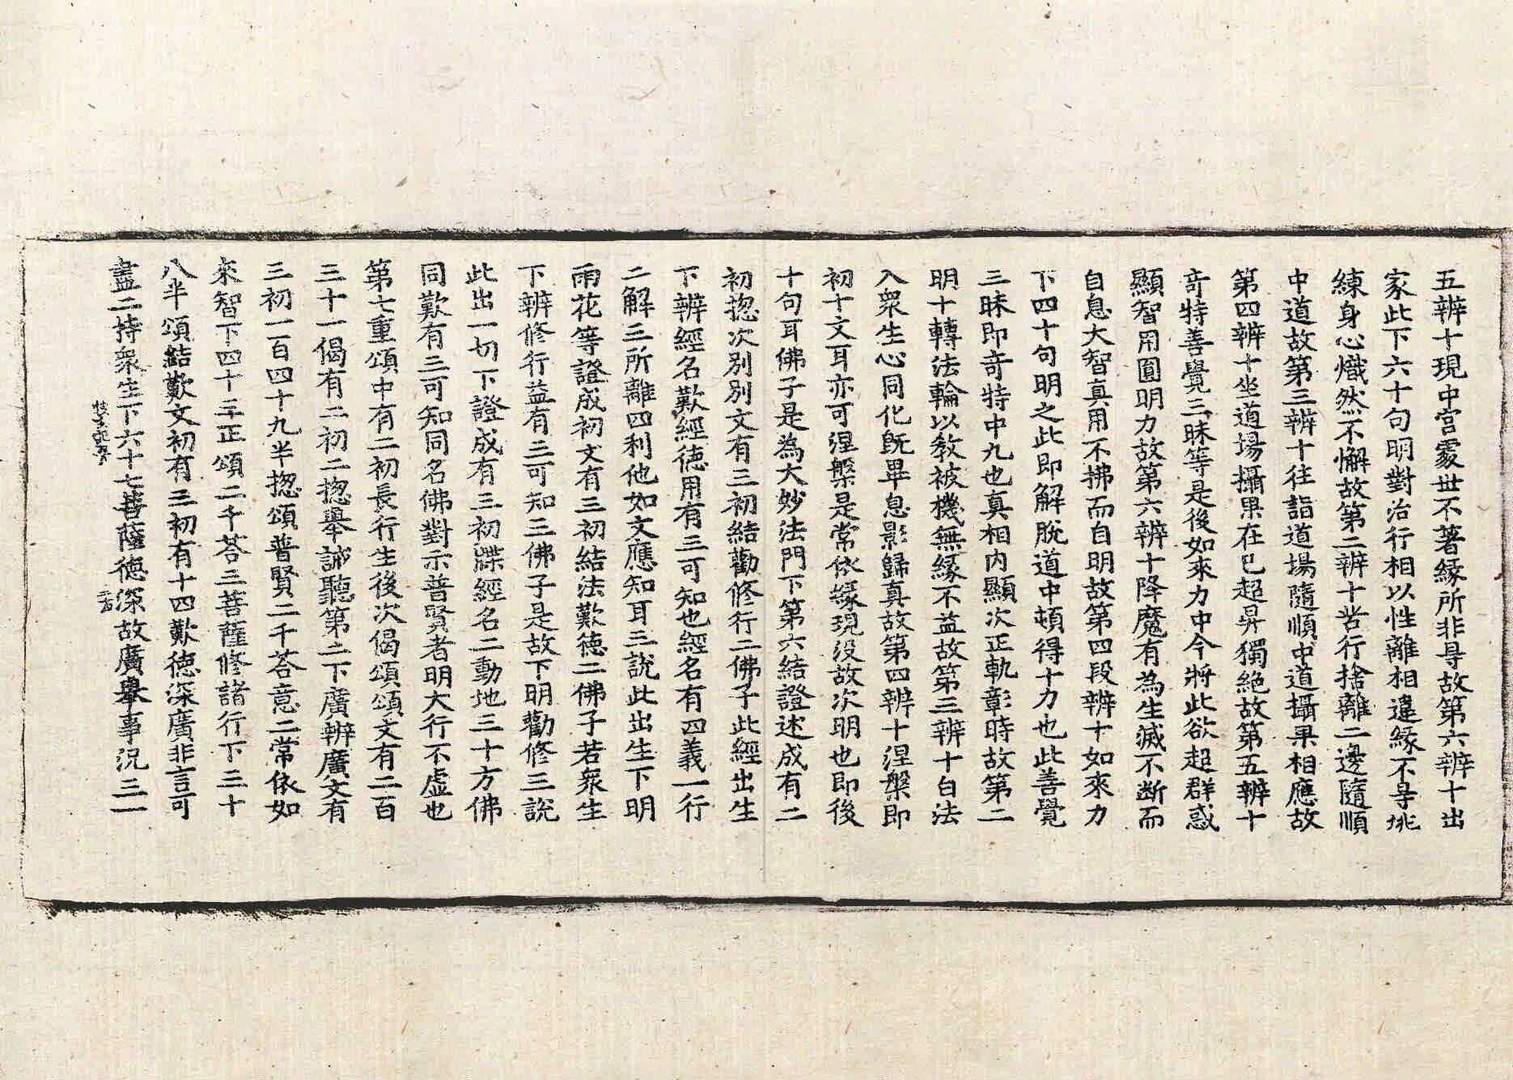 五辨十現中宮處世不著緣所非㝵故第六辨十出
家此下六十句明對治行相以性離相違緣不㝵
練身心熾然不懈故第二辨十苦行捨離二邊隨順
中道故第三辨十往詣道場隨順中道攝果相應故
第四辨十坐道場攝果在已超昇獨絕故第五辨十
竒特善覺三昧等是後如來力中今將此欲超群惑
顯智用圓明力故第六辨十降魔有為生滅不斷而
自息大智真用不拂而自明故第四段辨十如來力
下四十句明之此即解脫道中頓得十力也此善覺
三昧即竒特中九也真相內顯次正軌彰時故第二
明十轉法輪以教被機無緣不益故第三辨十白法
入眾生心同化既畢息影歸真故第四辨十涅槃即
初十文耳亦可涅槃是常依緣現沒故次明也即後
十句耳佛子是為大妙法門下第六結證述成有二
初揔次別別文有三初結勸修行二佛子此經出生
下辨經名歎經德用有三可知也經名有四義一行
二解三所離四利他如文應知耳三說此出生下明
雨花等證成初文有三初結法歎德二佛子若眾生
下辨修行益有三可知三佛子是故下明勸修三說
此出一切下證成有三初牒經名二動地三十方佛
同歎有三可知同名佛對示普賢者明大行不虛也
第七重頌中有二初長行生後次偈頌頌文有二百
三十一偈有二初二揔舉誡聽第二下廣辨廣文有
三初一百四十九半揔頌普賢二千荅意二常依如
來智下四十三正頌二千荅三菩薩修諸行下三十
八半頌結歎文初有三初有十四歎德深廣非言可
盡二持眾生下六十七菩薩德深故廣舉事況三一